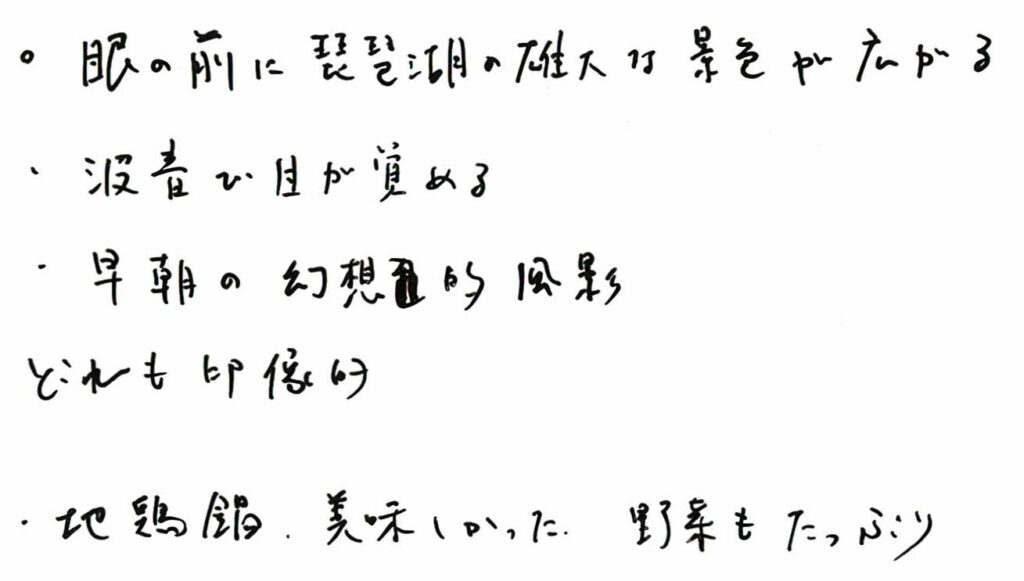 。眼の前に琵琶湖の雄大な景色が広がる
・波音で目が覚める
・早朝の幻想的風影
どれも印像的
・地鶏鍋.美味しかった.野菜もたっぷり